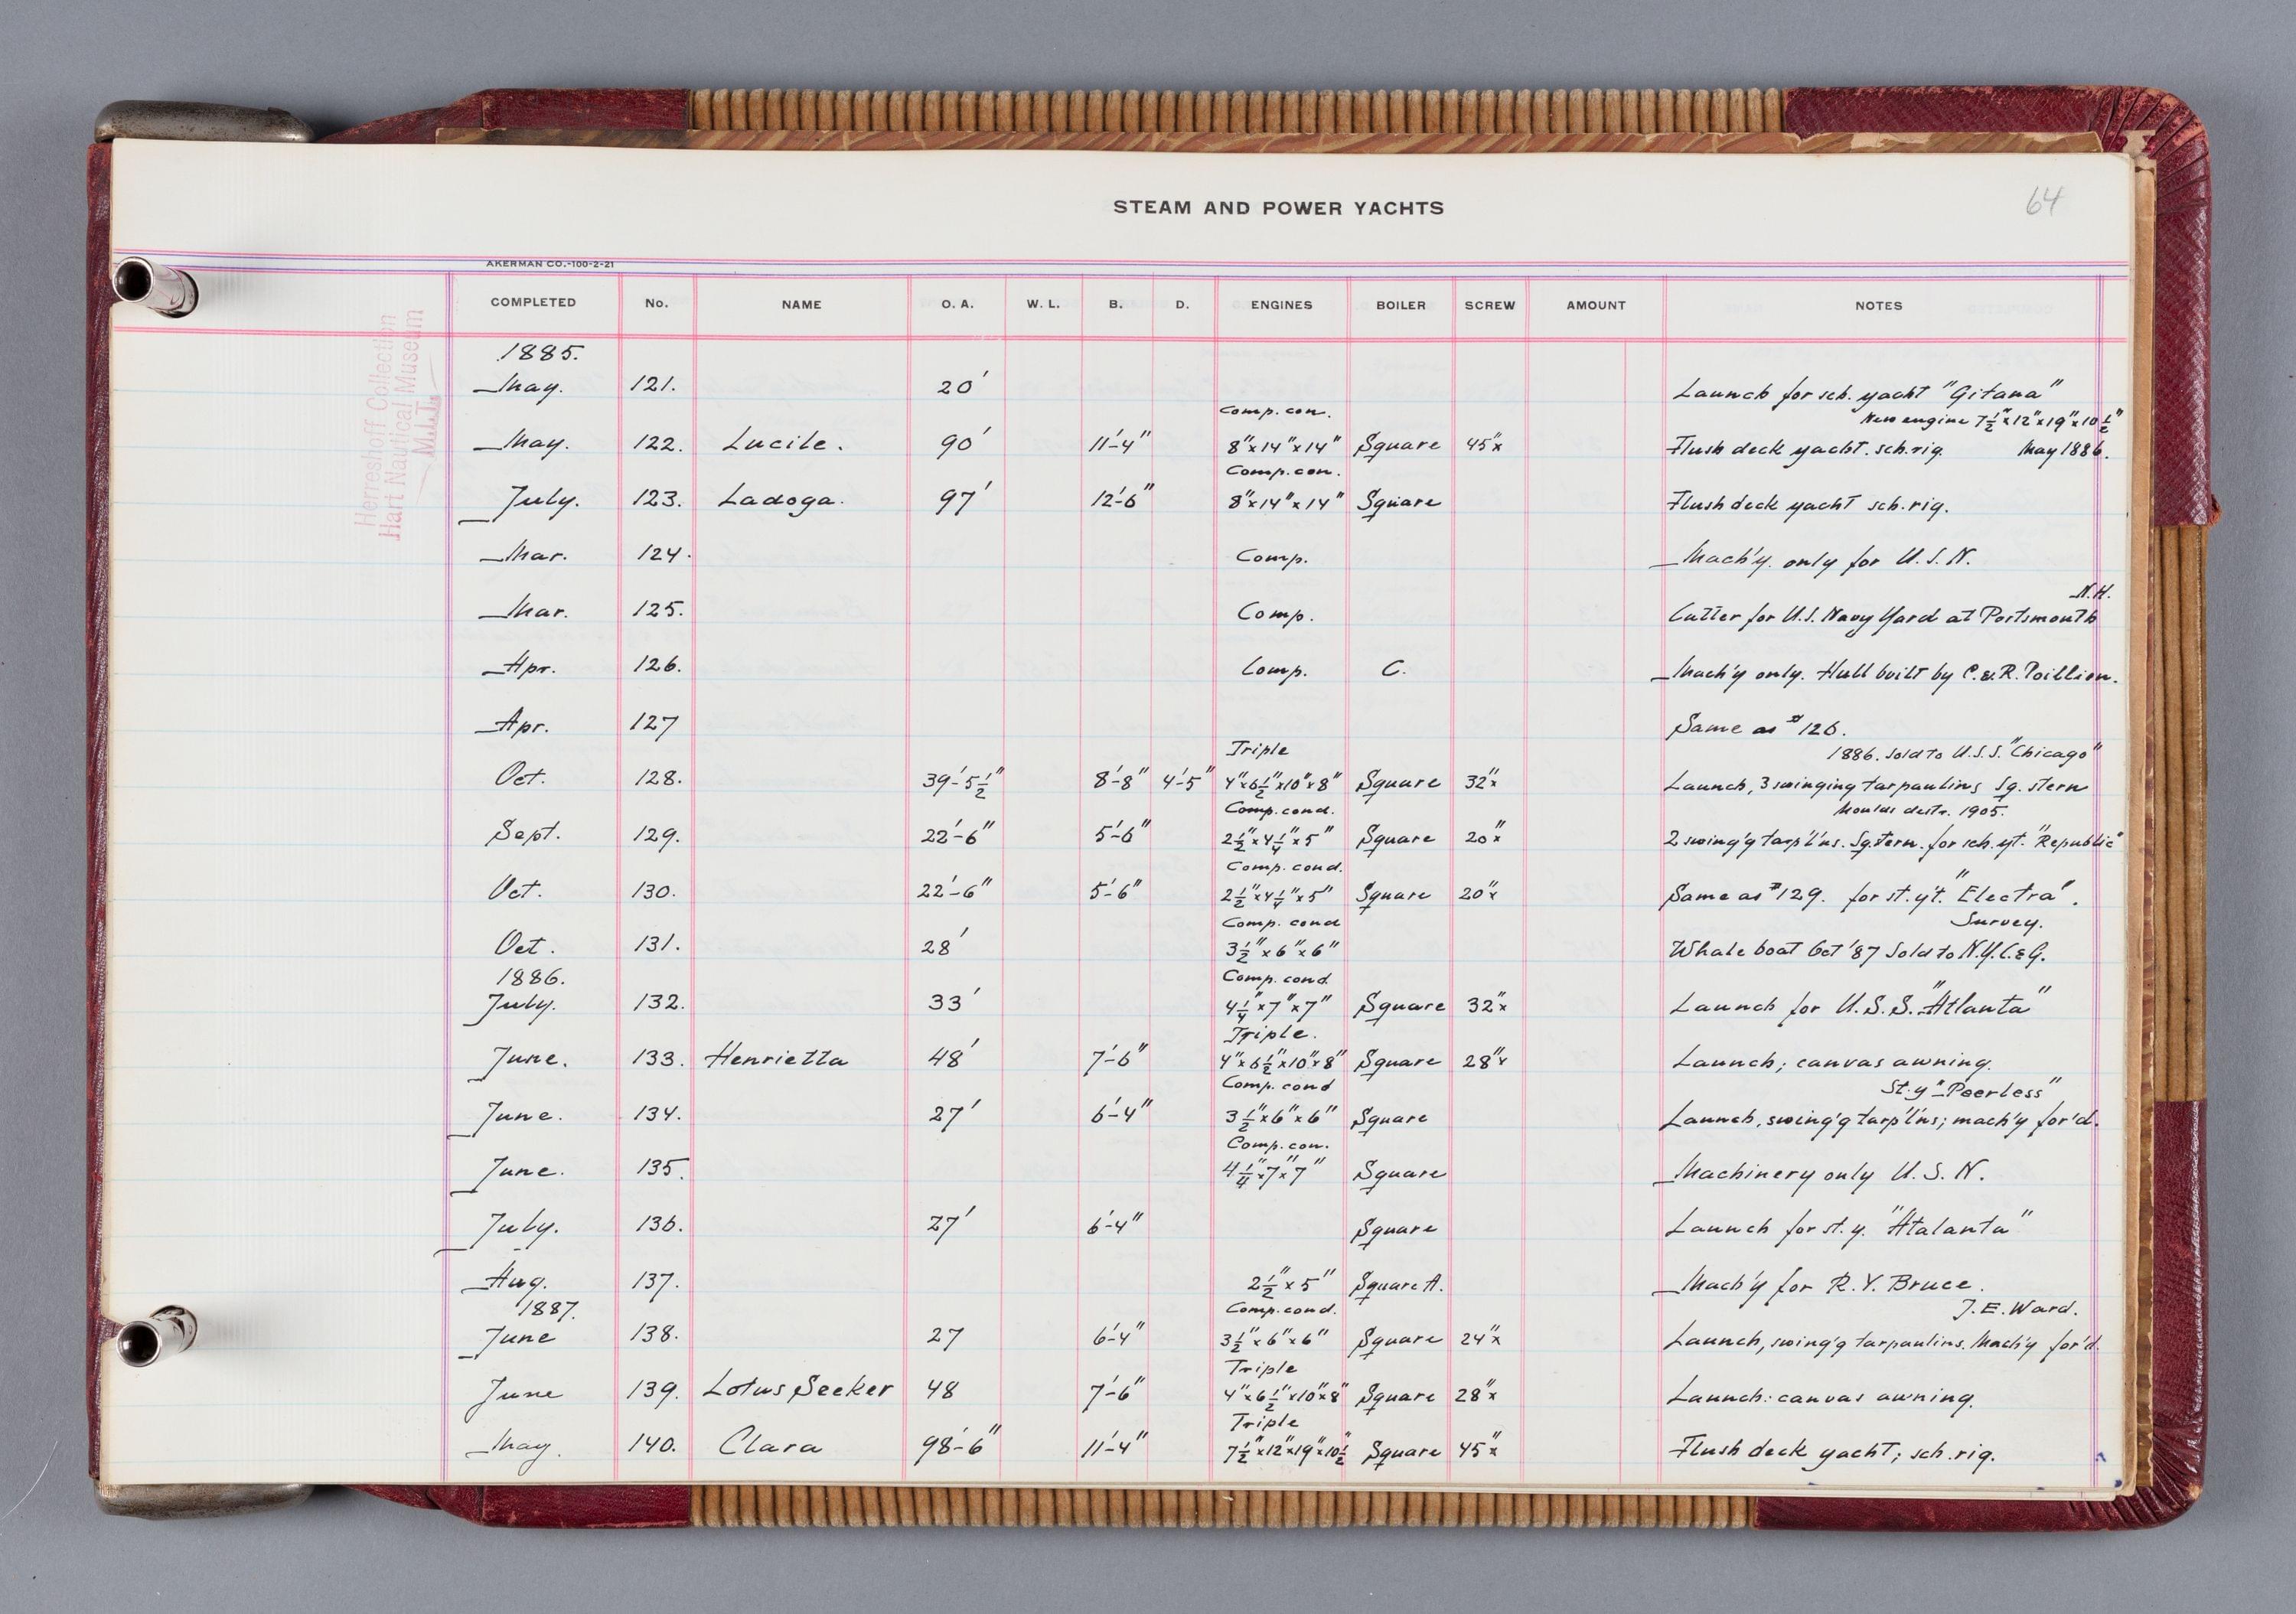 STEAM AND POWER YACHTS
64
AKERMAN CO.-100-2-21
COMPLETED No. NAME O. A. W. L. B. D. ENGINES BOILER SCREW AMOUNT NOTES
Herreshoff Collection
Hart Nautical Museum
M.I.T.
1885.
May. 121. 20' Launch for sch. yacht "Gitana"
Comp. con. New engine 7½"x12"x19"x10½"
May. 122. Lucile. 90' 11'-4" 8"x14"x14" Square 45"x Flush deck yacht. sch. rig. May 1886.
Comp. con.
July. 123. Ladoga. 97' 12'-6" 8"x14"x14" Square Flush deck yacht sch. rig.
Mar. 124. Comp. Mach'y. only for U.S.N.
N.H.
Mar. 125. Comp. Cutter for U.S. Navy Yard at Portsmouth
Apr. 126. Comp. C. Mach'y only. Hull built by C. & R. Poillion.
Apr. 127 Same as #126.
Triple 1886. Sold to U.S.S. "Chicago"
Oct. 128. 39'-5½" 8'-8" 4'-5" 4"x6½"x10"x8" Square 32"x Launch, 3 swinging tarpaulins Sq. stern
Comp. cond. Moulds destr. 1905.
Sept. 129. 22'-6" 5'-6" 2½"x4¼"x5" Square 20"x 2 swing'g tarp'l'ns. Sq. stern. for sch. yt. "Republic"
Comp. cond.
Oct. 130. 22'-6" 5'-6" 2½"x4¼"x5" Square 20"x Same as #129. for st. yt. "Electra".
Comp. cond Survey.
Oct. 131. 28' 3½"x6"x6" Whale boat Oct '87 Sold to N.Y.C.&G.
1886. Comp. cond
July. 132. 33' 4¼"x7"x7" Square 32"x Launch for U.S.S. "Atlanta"
Triple.
June. 133. Henrietta 48' 7'-6" 4"x6½"x10"x8" Square 28"x Launch; canvas awning.
Comp. cond St. y "Peerless"
June. 134. 27' 6'-4" 3½"x6"x6" Square Launch, swing'g tarp'l'ns; mach'y for'd.
Comp. con.
June. 135. 4¼"x7"x7" Square Machinery only U.S.N.
July. 136. 27' 6'-4" Square Launch for st. y. "Atalanta"
Aug. 137. 2½"x5" Square A. Mach'y for R. Y. Bruce.
1887. Comp. cond. J. E. Ward.
June 138. 27 6'-4" 3½"x6"x6" Square 24"x Launch, swing'g tarpaulins. Mach'y for'd.
Triple
June 139. Lotus Seeker 48 7'-6" 4"x6½"x10"x8" Square 28"x Launch: canvas awning.
Triple
May. 140. Clara 98'-6" 11'-4" 7½"x12"x19"x10½" Square 45"x Flush deck yacht; sch. rig.